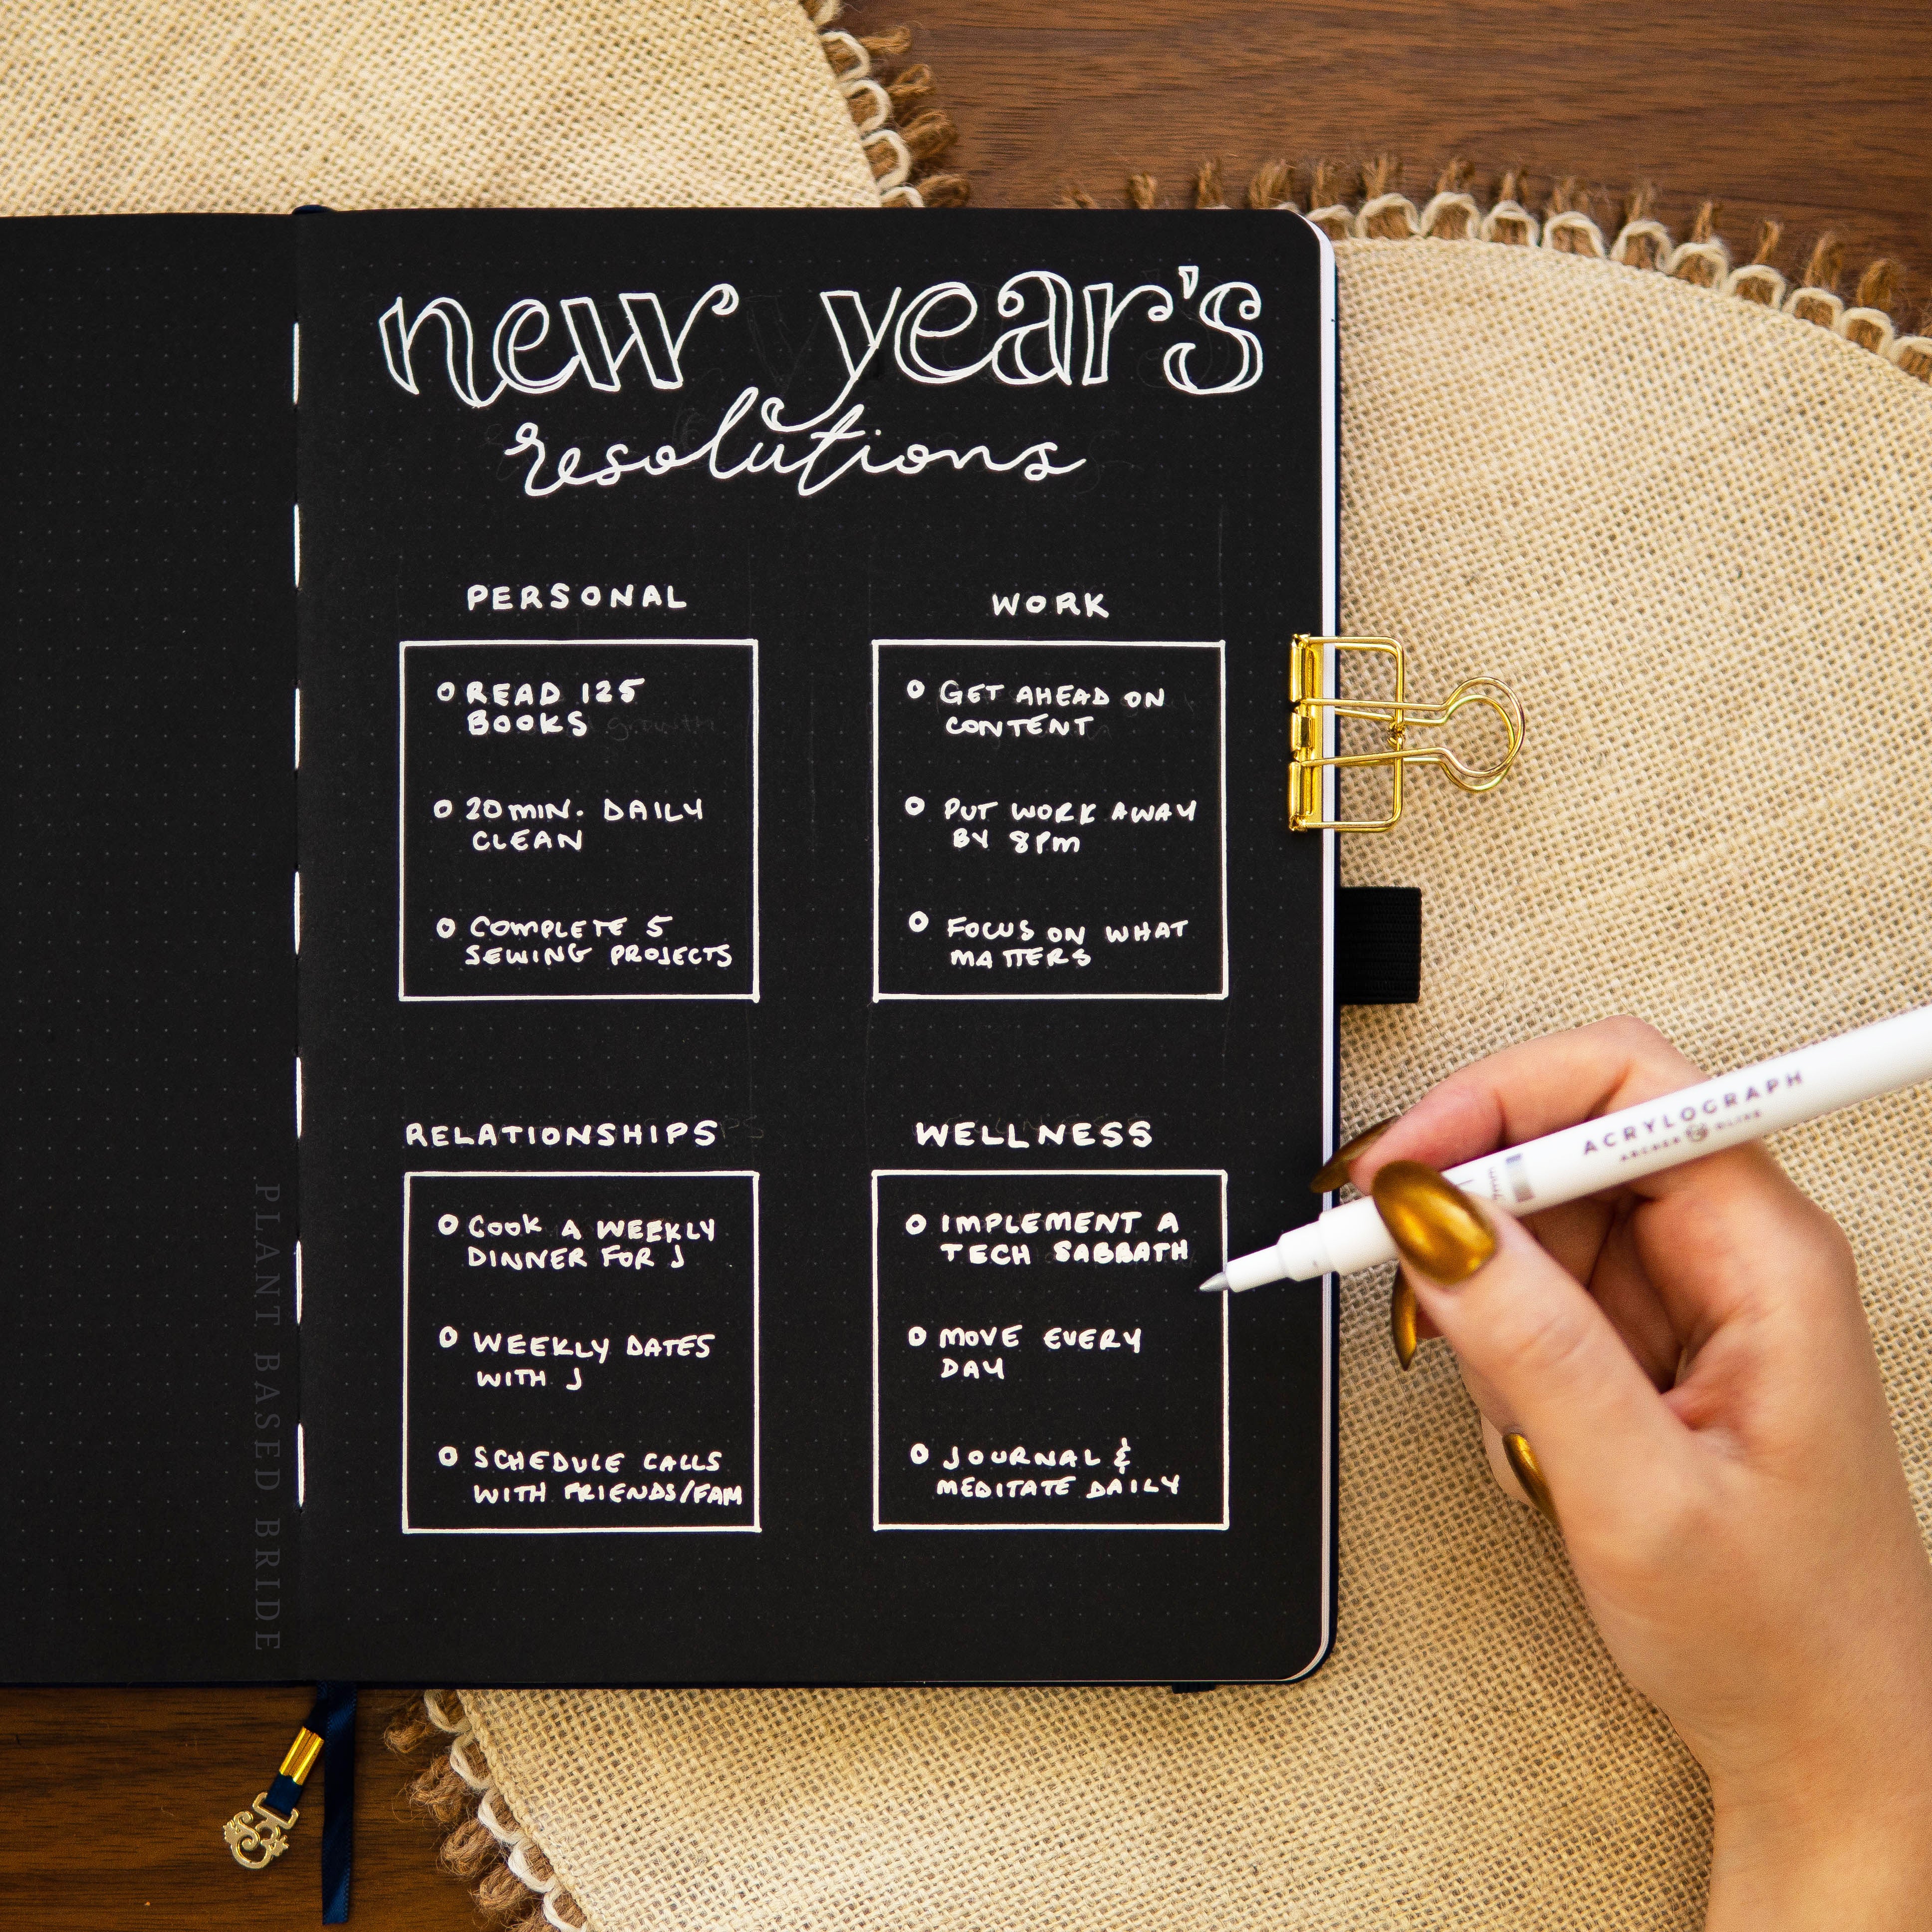 new year's
resolutions
PERSONAL
READ 125
BOOKS
20 MIN. DAILY
CLEAN
COMPLETE 5
SEWING PROJECTS
WORK
GET AHEAD ON
CONTENT
PUT WORK AWAY
BY 8PM
FOCUS ON WHAT
MATTERS
RELATIONSHIPS
COOK A WEEKLY
DINNER FOR J
WEEKLY DATES
WITH J
SCHEDULE CALLS
WITH FRIENDS/FAM
WELLNESS
IMPLEMENT A
TECH SABBATH
MOVE EVERY
DAY
JOURNAL &
MEDITATE DAILY
PLANT BASED BRIDE
ACRYLOGRAPH
ARCHER & OLIVE